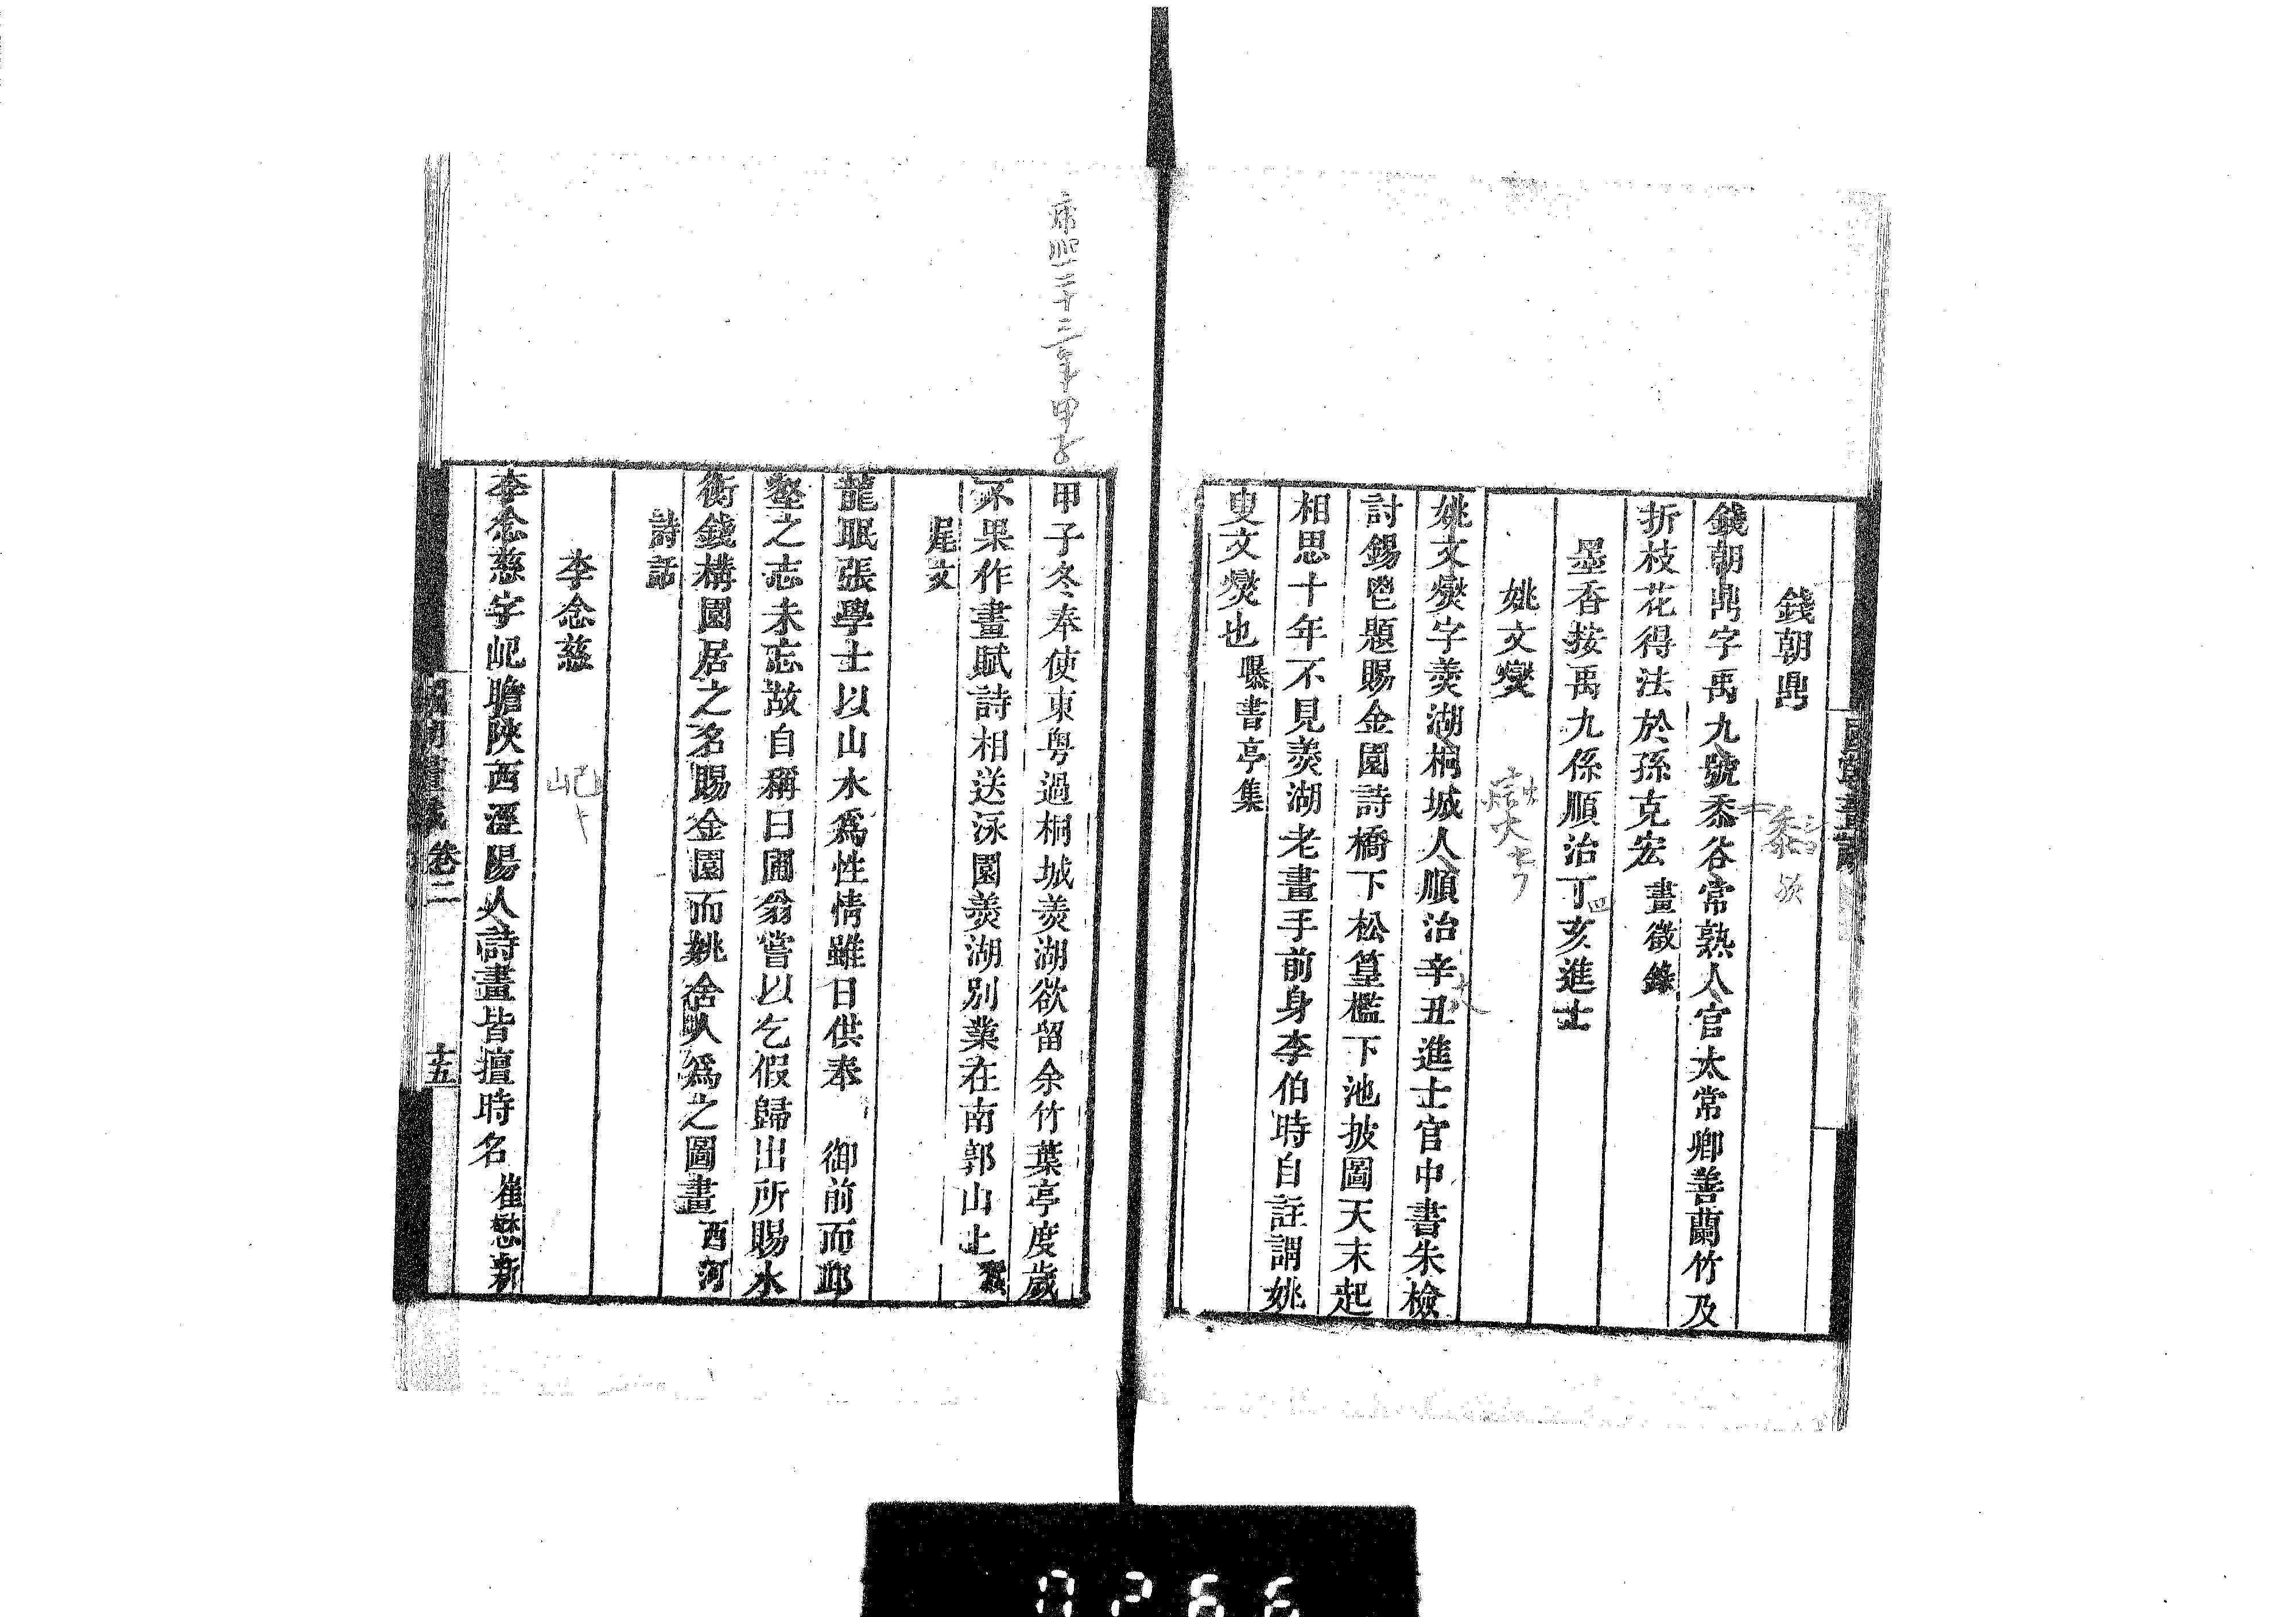 錢朝鼎
錢朝鼎字禹九號黍谷常熟人官太常卿善蘭竹及
折枝花得法於孫克宏 畫徵錄
墨香按禹九係順治丁亥進士
姚文燮
姚文燮字羨湖桐城人順治辛丑進士官中書朱檢
討錫鬯題賜金園詩橋下松篁檻下池披圖天末起
相思十年不見羨湖老畫手前身李伯時自註謂姚
叟文燮也 曝書亭集
康熙二十三年甲子
甲子冬奉使東粤過桐城羨湖欲留余竹葉亭度歲
不果作畫賦詩相送泳園羨湖別業在南郭山上 蠶
尾文
龍眠張學士以山水爲性情雖日供奉 御前而邱
壑之志未忘故自稱曰圃翁嘗以乞假歸出所賜水
衡錢構園居之名賜金園而姚舍人爲之圖畫 西河
詩話
李念慈
李念慈字屺瞻陝西涇陽人詩畫皆擅時名 崔懋新
卷二
十五
0266